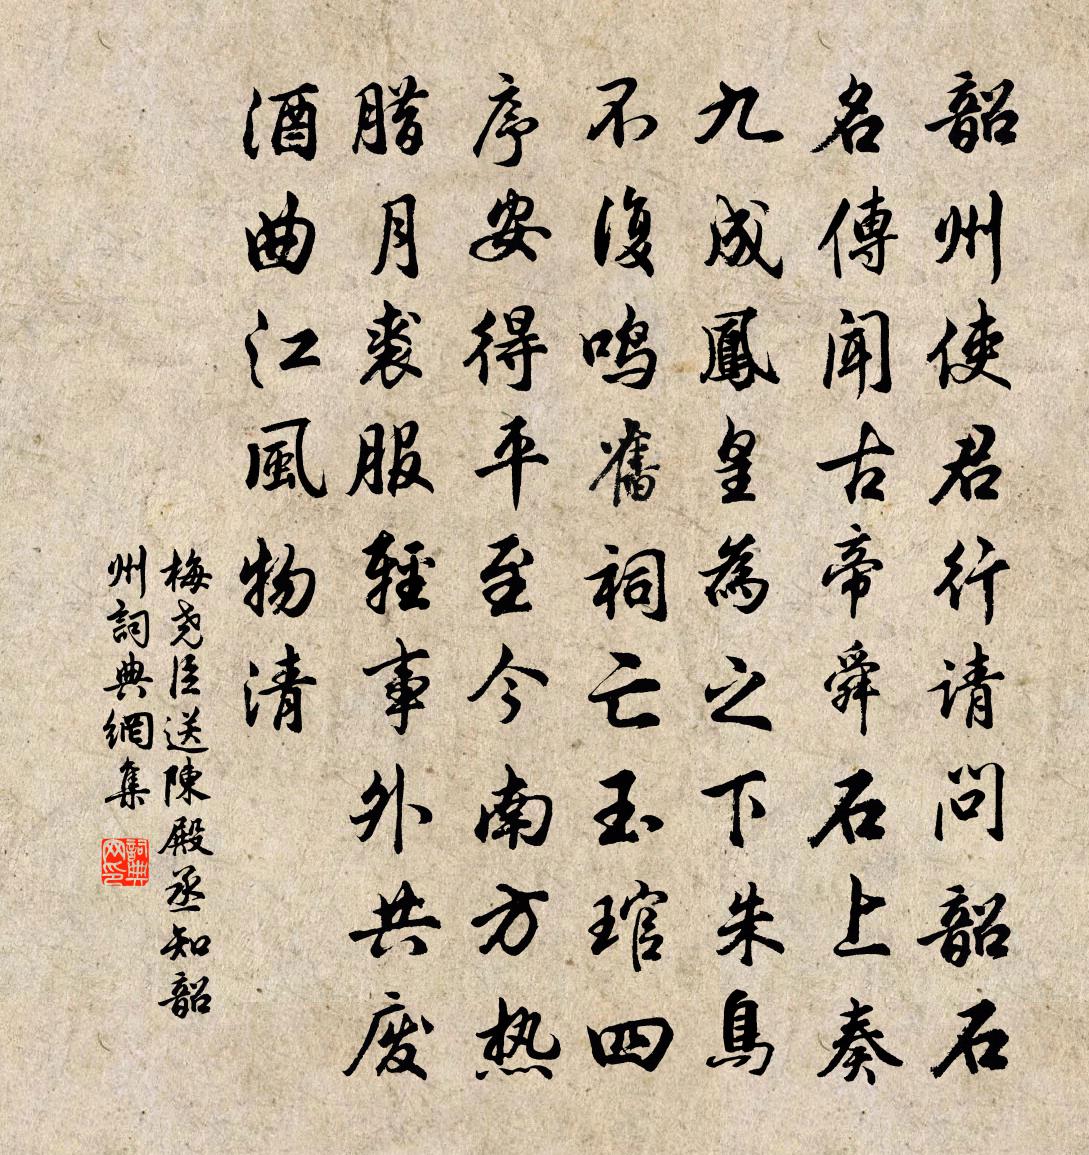 韶州使君行请问韶石
名傳闻古帝舜石上奏
九成鳳皇為之下朱鳥
不復鸣舊祠亡玉琯四
序安得平至今南方热
腊月裘服輕事外共废
酒曲江風物清
梅尧臣送陳殿丞知韶
州詞典網集
詞典
网印